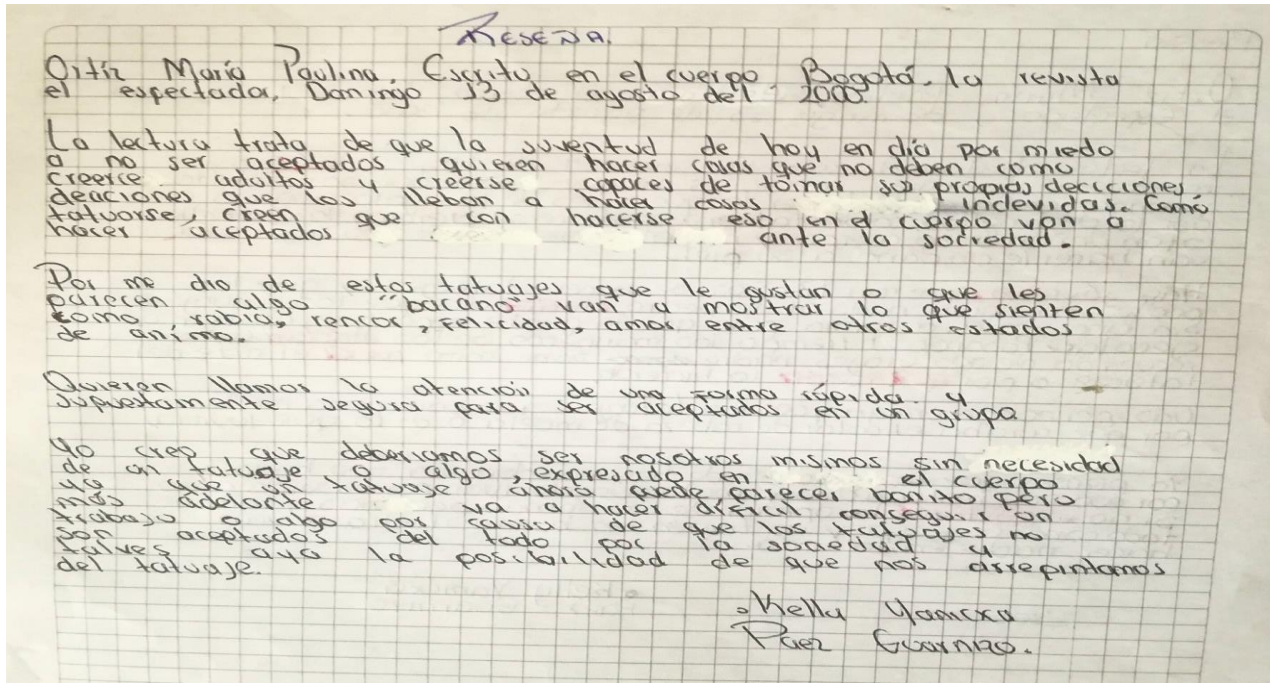 RESEÑA.
Ortíz María Paulina. Escrito en el cuerpo. Bogotá. la revista
el espectada, Domingo 13 de agosto del 2000.
La lectura trata de que la juventud de hoy en día por miedo
a no ser aceptados quieren hacer cosas que no deben como
creerce adultos y creerse capaces de tomar sus propias decicciones,
deaciones que los lleban a hacer cosas indevidas. Comó
tatuorse, creen que con hacerse eso en el cuerpo van a
hacer aceptados ante la sociedad.
Por me dio de estos tatuajes que le gustan o que les
parecen algo "bacano" van a mostrar lo que sienten
como rabia, rencor, felicidad, amor entre otros estados
de animo.
Quieren llamar la atención de una forma rápida y
supuestamente segura para ser aceptados en un grupo
Yo creo que deberiamos ser nosotros mismos sin necesidad
de un tatuaje o algo, expresado en el cuerpo
ya que un tatuaje ahora puede parecer bonito pero
más adelante va a hacer dificil conseguir un
trabajo o algo por causa de que los tatuajes no
son aceptados del todo por la sociedad y
talves aya la posibilidad de que nos arrepintamos
del tatuaje.
Kella
Paez